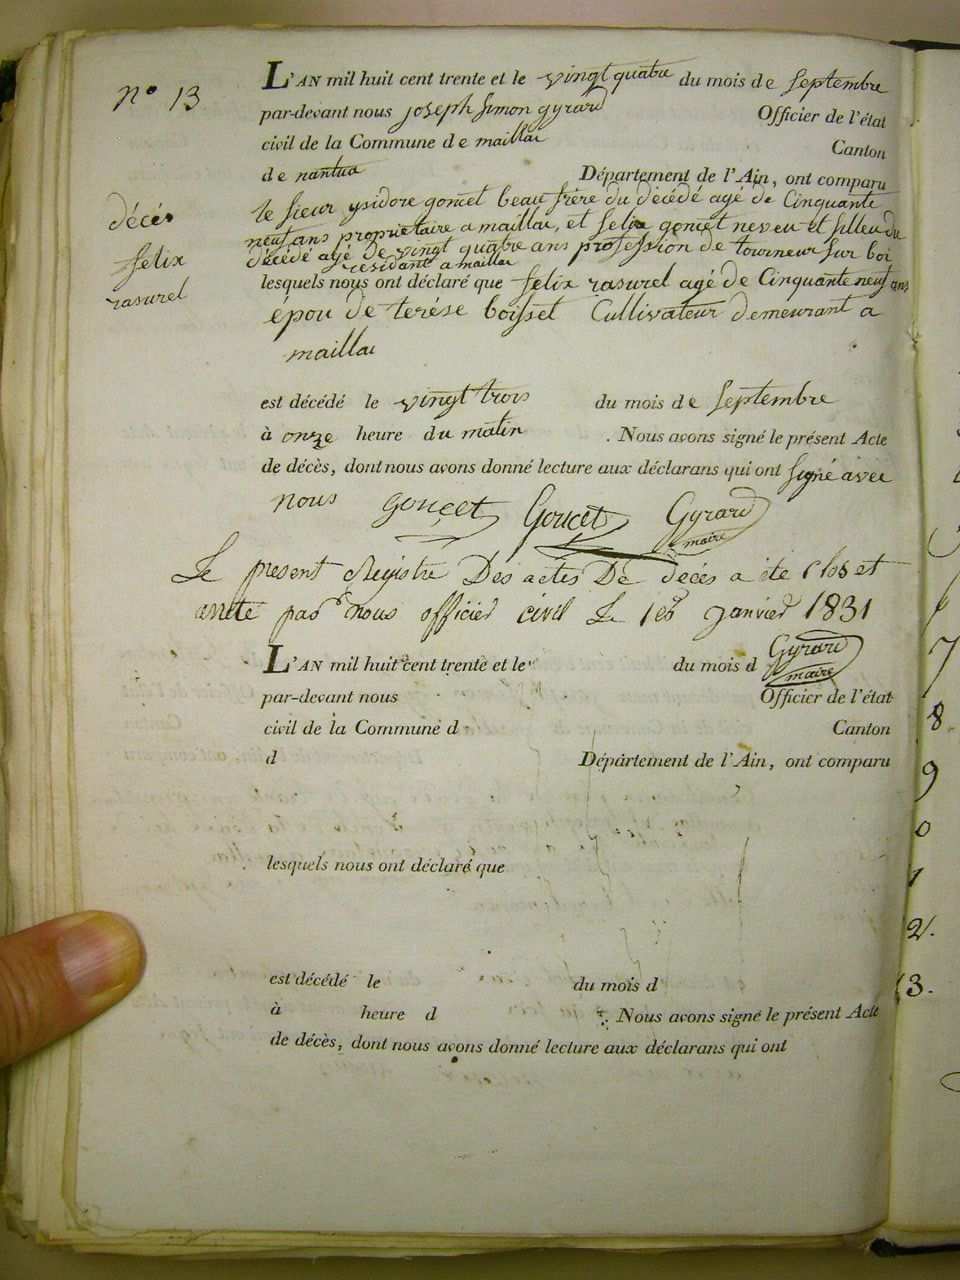 n° 13
décés
felix
rasurel
L'AN mil huit cent trente et le vingt quatre du mois de Septembre
par-devant nous joseph simon gyrard Officier de l'état
civil de la Commune de maillac Canton
de nantua Département de l'Ain, ont comparu
le sieur ysidore goncet beau frère du décédé agé de Cinquante
neuf ans propriétaire a maillac, et felix goncet neveu et filleu du
décédé agé de vingt quatre ans profession de tourneur sur boi
residant a maillac
lesquels nous ont déclaré que felix rasurel agé de Cinquante neuf ans
épou de terése boisset Cultivateur demeurant a
maillac
est décédé le vingt trois du mois de Septembre
à onze heure du matin . Nous avons signé le présent Acte
de décès, dont nous avons donné lecture aux déclarans qui ont signé avec
nous gonçet Goncet Gyrard
maire
Le present Registre Des actes De décés a ete clos et
arreté par nous officier civil Le 1er janvier 1831
Gyrard
maire
L'AN mil huit cent trente et le du mois d
par-devant nous Officier de l'état
civil de la Commune d Canton
d Département de l'Ain, ont comparu
lesquels nous ont déclaré que
est décédé le du mois d
à heure d . Nous avons signé le présent Acte
de décès, dont nous avons donné lecture aux déclarans qui ont
7
8.
9
0
1
2.
3.